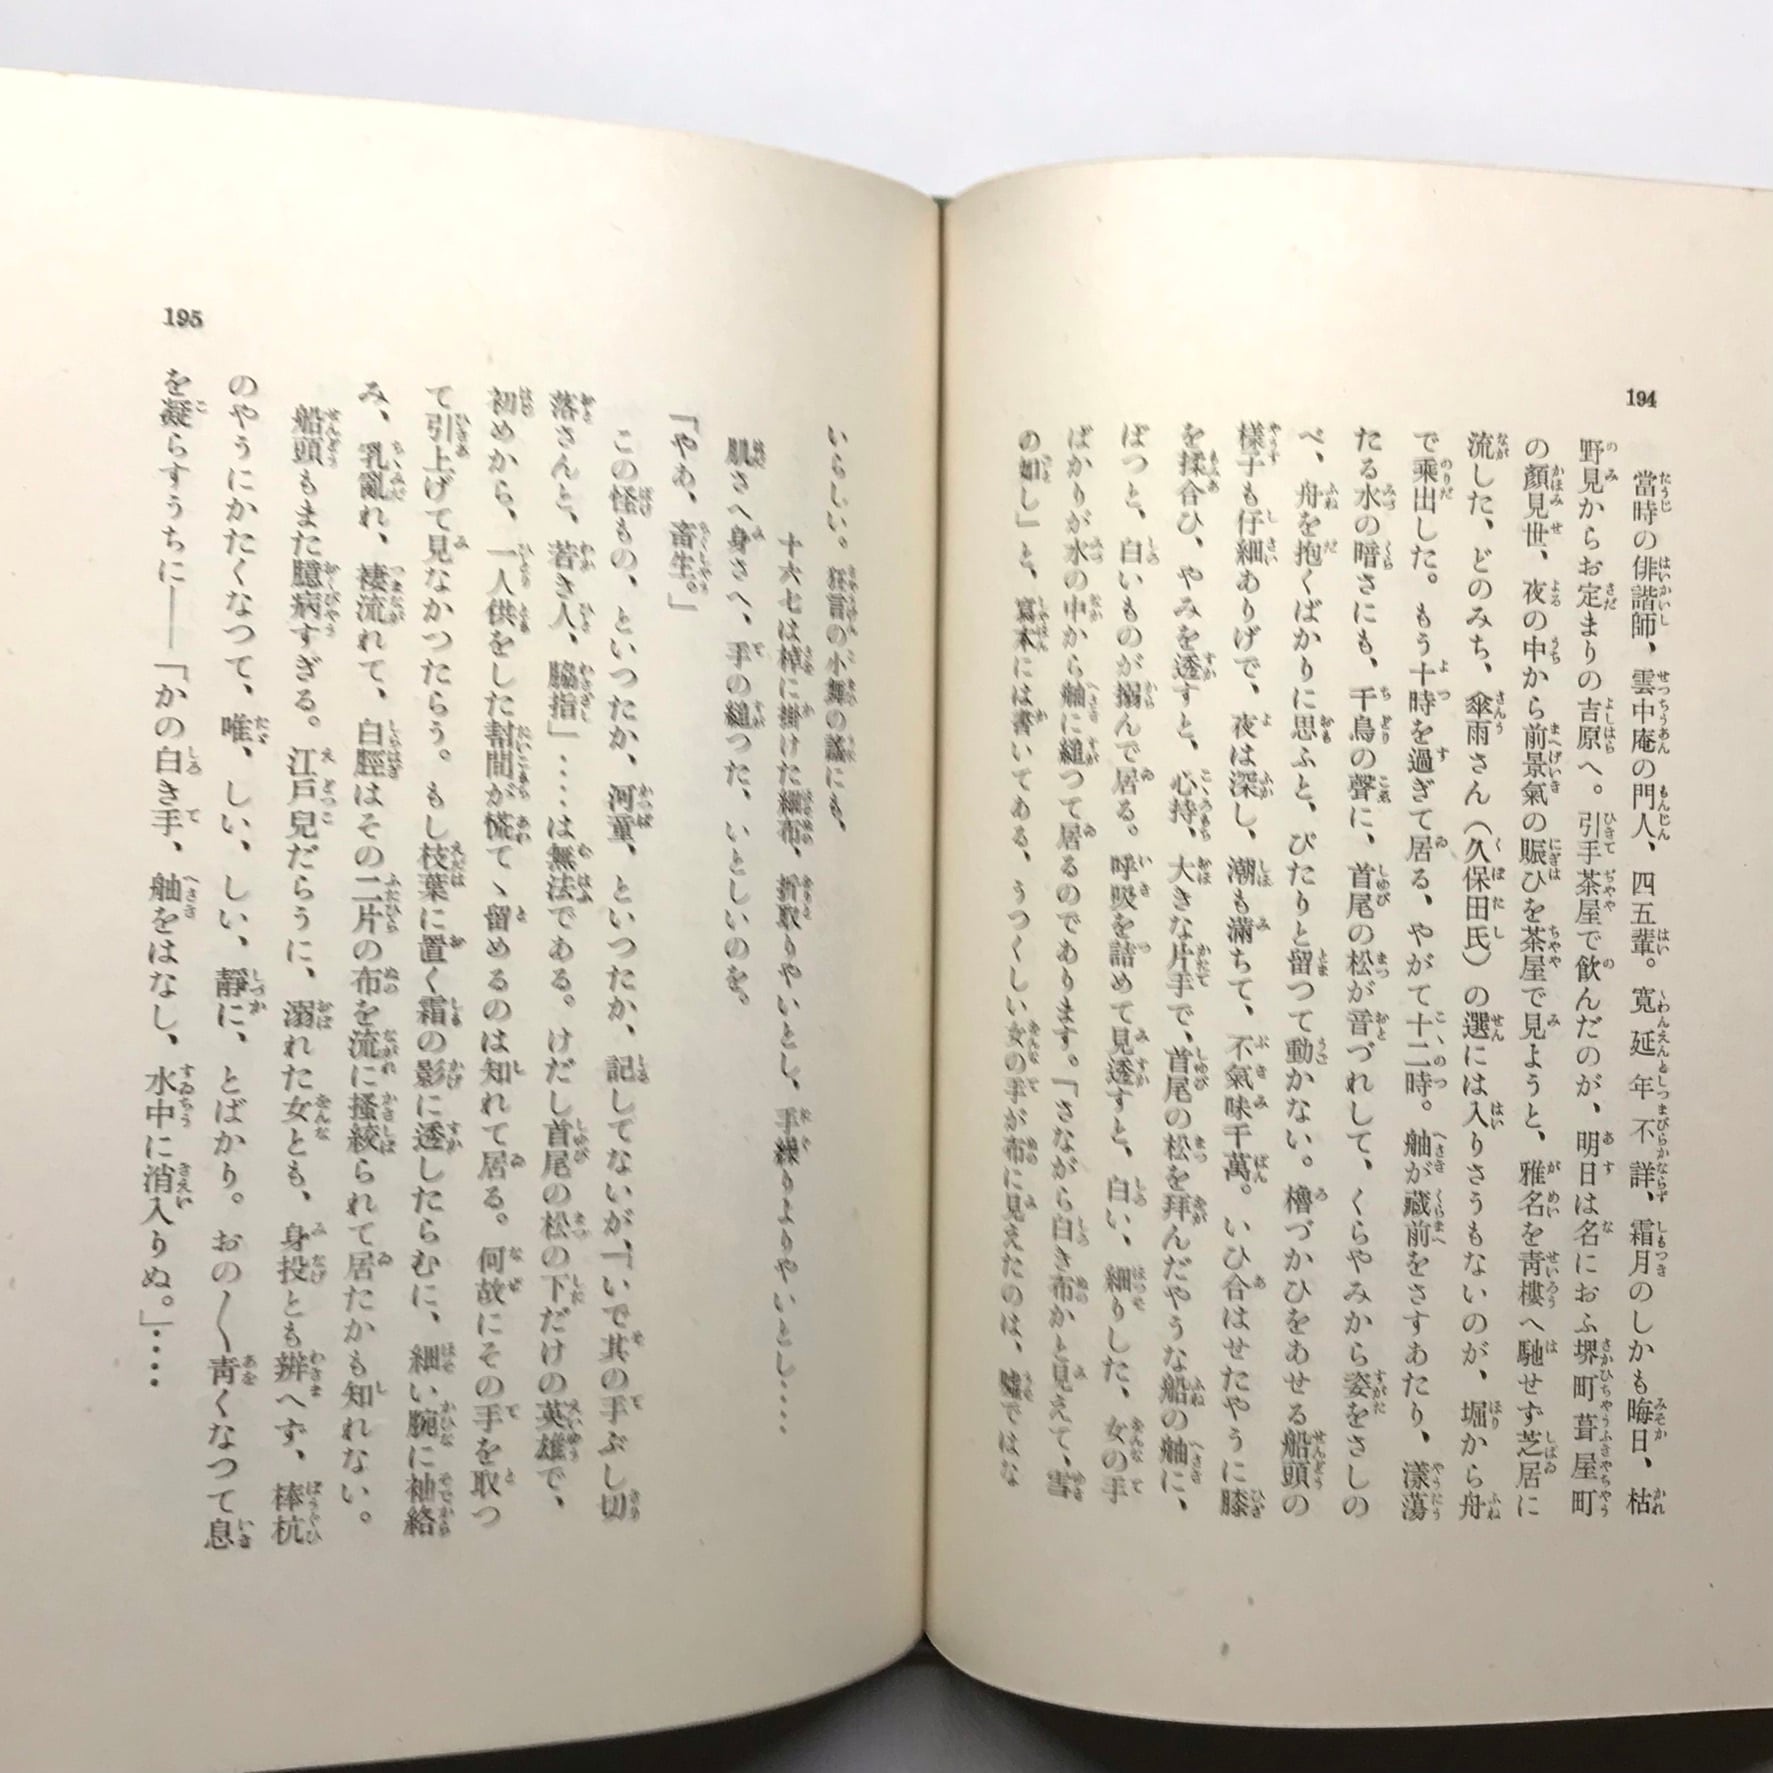 194
當時の俳諧師、雲中庵の門人、四五輩。寬延年不詳、霜月のしかも晦日、枯
野見からお定まりの吉原へ。引手茶屋で飲んだのが、明日は名におふ堺町葺屋町
の顏見世、夜の中から前景氣の賑ひを茶屋で見ようと、雅名を靑樓へ馳せず芝居に
流した、どのみち、傘雨さん（久保田氏）の選には入りさうもないのが、堀から舟
で乘出した。もう十時を過ぎて居る、やがて十二時。舳が藏前をさすあたり、漾蕩
たる水の暗さにも、千鳥の聲に、首尾の松が音づれして、くらやみから姿をさしの
べ、舟を抱くばかりに思ふと、ぴたりと留つて動かない。櫓づかひをあせる船頭の
樣子も仔細ありげで、夜は深し、潮も滿ちて、不氣味千萬。いひ合はせたやうに膝
を揉合ひ、やみを透すと、心持、大きな片手で、首尾の松を拜んだやうな船の舳に、
ぼつと、白いものが搦んで居る。呼吸を詰めて見透すと、白い、細りした、女の手
ばかりが水の中から舳に縋つて居るのであります。「さながら白き布かと見えて、雪
の如し」と、寫本には書いてある、うつくしい女の手が布に見えたのは、嘘ではな
いらしい。狂言の小舞の謠にも、
十六七は棹に掛けた細布、折取りやいとし、手繰りよりやいとし‥‥
肌さへ身さへ、手の縋つた、いとしいのを。
「やあ、畜生。」
この怪もの、といつたか、河童、といつたか、記してないが、「いで其の手ぶし切
落さんと、若き人、脇指」‥‥は無法である。けだし首尾の松の下だけの英雄で、
初めから、一人供をした幇間が慌てゝ留めるのは知れて居る。何故にその手を取つ
て引上げて見なかつたらう。もし枝葉に置く霜の影に透したらむに、細い腕に袖絡
み、乳亂れ、褄流れて、白脛はその二片の布を流に搔絞られて居たかも知れない。
船頭もまた臆病すぎる。江戶兒だらうに、溺れた女とも、身投とも辨へず、棒杭
のやうにかたくなつて、唯、しい、しい、靜に、とばかり。おの〳〵靑くなつて息
を凝らすうちに――「かの白き手、舳をはなし、水中に消入りぬ。」‥‥
195